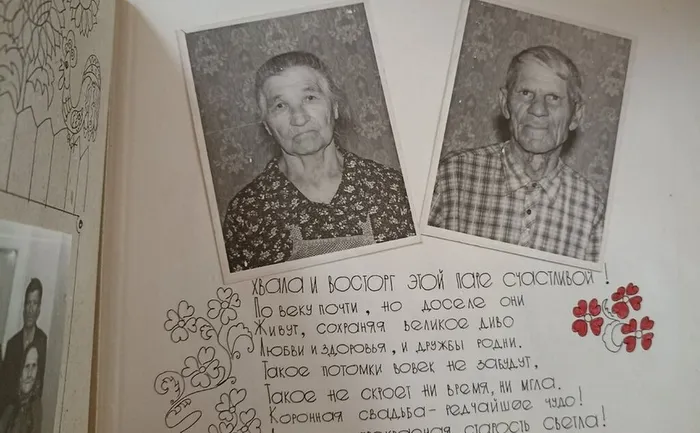 ХВАЛА И ВОСТОРГ ЭТОЙ ПАРЕ СЧАСТЛИВОЙ!
ПО ВЕКУ ПОЧТИ, НО ДОСЕЛЕ ОНИ
ЖИВУТ, СОХРАНЯЯ ВЕЛИКОЕ ДИВО
ЛЮБВИ И ЗДОРОВЬЯ, И ДРУЖБЫ РОДНИ.
ТАКОЕ ПОТОМКИ ВОВЕК НЕ ЗАБУДУТ,
ТАКОЕ НЕ СКРОЕТ НИ ВРЕМЯ, НИ МГЛА.
КОРОННАЯ СВАДЬБА - РЕДЧАЙШЕЕ ЧУДО!
ПРЕКРАСНАЯ СТАРОСТЬ СВЕТЛА!